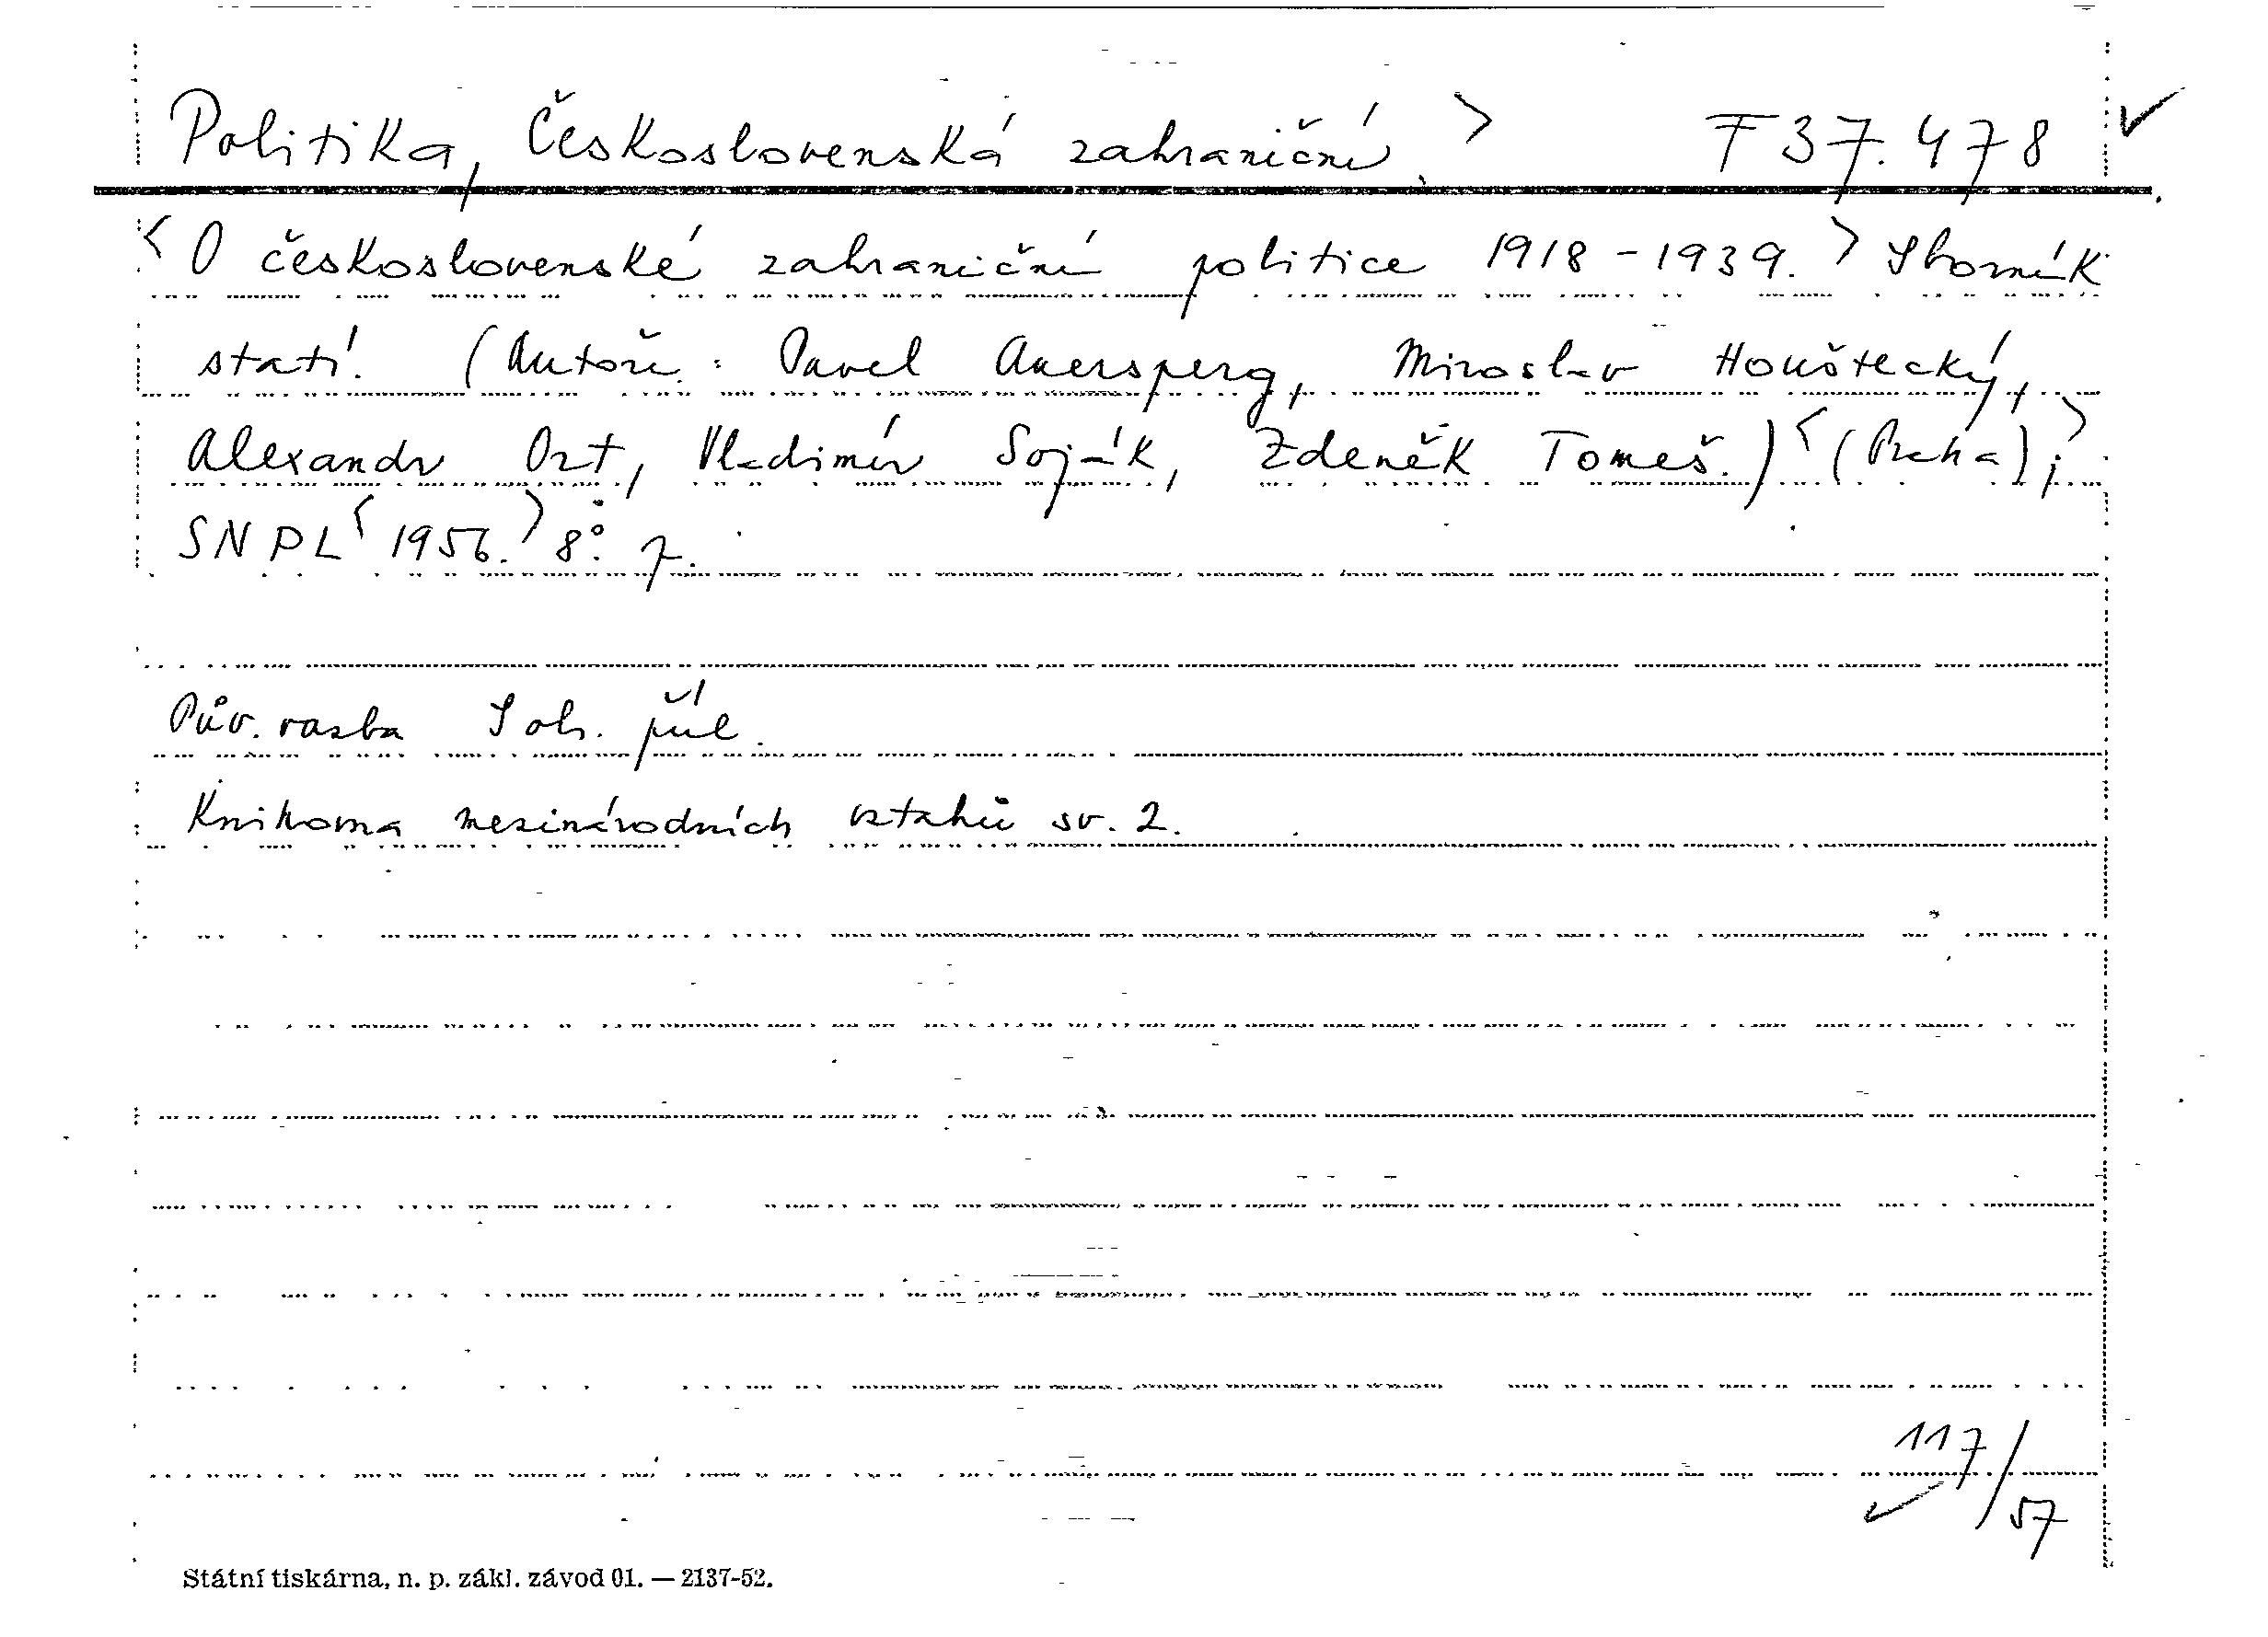 Politika, Československá zahraniční. > F 37.478 ✓
<O československé zahraniční politice 1918-1939.> Sborník
statí. (Autoři: Pavel Auersperg, Miroslav Houštecký,
Alexandr Ort, Vladimír Soják, Zdeněk Tomeš.) <(Praha),>
SNPL <1956.> 8°. 7.
Pův. vazba S ob. příl.
Knihovna mezinárodních vztahů sv. 2.
117/57
Státní tiskárna, n. p. zákl. závod 01. — 2137-52.